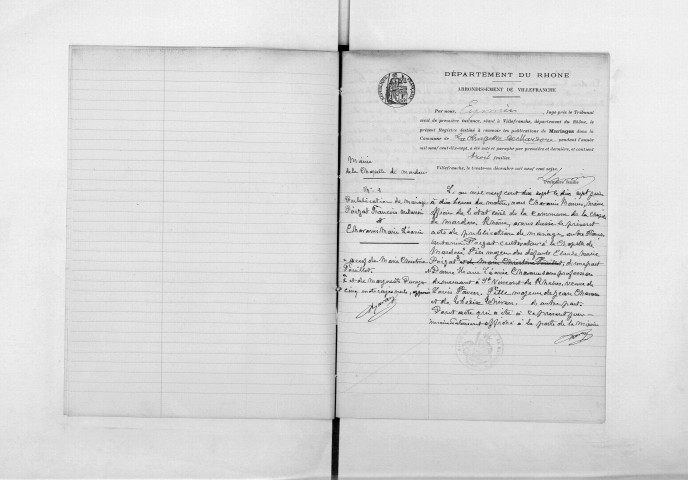 DÉPARTEMENT DU RHONE
ARRONDISSEMENT DE VILLEFRANCHE
Par nous, Juge près le Tribunal
civil de première instance, séant à Villefranche, département du Rhône, le
présent Registre destiné à recevoir les publications de Mariages dans la
Commune de La Chapelle de Mardore pendant l'année
mil neuf cent dix-sept, a été coté et paraphé par première et dernière, et contient
trois feuilles
Villefranche, le trente-un décembre mil neuf cent seize.
Mairie
de la Chapelle de Mardore
N° 1
Publication de mariage
Poizat Francois Antoine
et
Chavanon Marie
L'an mil neuf cent dix sept le dix sept juin
à dix heures du matin, nous Maire
officier de l'état civil de la Commune de la Chapelle
de Mardore, Rhône, avons dressé le présent
acte de publication de mariage, entre Francois
Antoine Poizat cultivateur à la Chapelle de
Mardore Fils majeur des défunts Claude Marie
Poizat et de Marie d'une part
et Dame Marie Chavanon
demeurant à St Vincent de Rheins, veuve de
Fille majeure de Jean Chavanon
et de d'autre part.
Dont acte qui a été à
immédiatement affiché à la porte de la Mairie
et de Marie Christine
et de Marguerite
cinq mots rayés nuls,